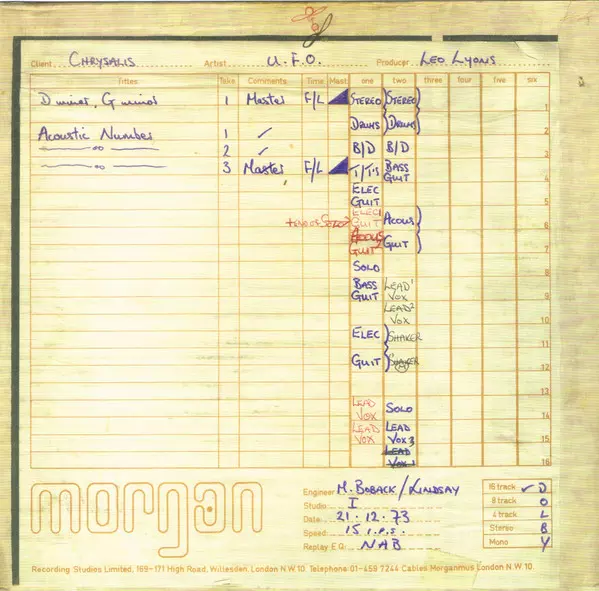 Client CHRYSALIS Artist U.F.O. Producer LEO LYONS
Titles Take Comments Time Mast one two three four five six
D minor, G minor 1 Master F/L STEREO STEREO 1
DRUMS DRUMS 2
Acoustic Number 1 ✓
2 ✓ B/D B/D 3
3 Master F/L T/T'S BASS GUIT 4
ELEC GUIT 5
+ end of SOLO? ELEC GUIT ACOUS 6
ACOUS GUIT GUIT 7
SOLO 8
BASS GUIT LEAD 1 VOX 9
LEAD 2 VOX 10
ELEC SHAKER 11
GUIT SHAKER 12
13
LEAD VOX SOLO 14
LEAD VOX LEAD VOX 3 15
LEAD VOX 1 16
morgan
Engineer M. BOBACK/LINDSAY
Studio I
Date 21.12.73
Speed 15 I.P.S.
Replay E.Q. NAB
16 track ✓ D
8 track O
4 track L
Stereo B
Mono Y
Recording Studios Limited, 169-171 High Road, Willesden, London N.W.10. Telephone: 01-459 7244 Cables Morganmus London N.W.10.